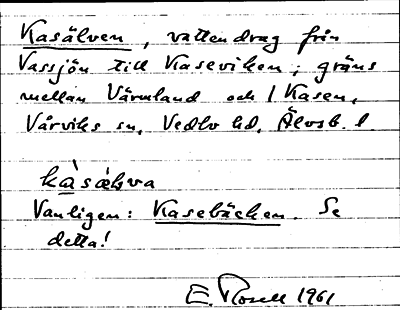 Kasälven, vattendrag från
Vassjön till Kaseviken; gräns
mellan Värmland och 1 Kasen,
Vårviks sn, Vedbo hd, Älvsb. l.
kàsä̀lva
Vanligen: Kasebäcken. Se
detta!
E. Rosell 1961